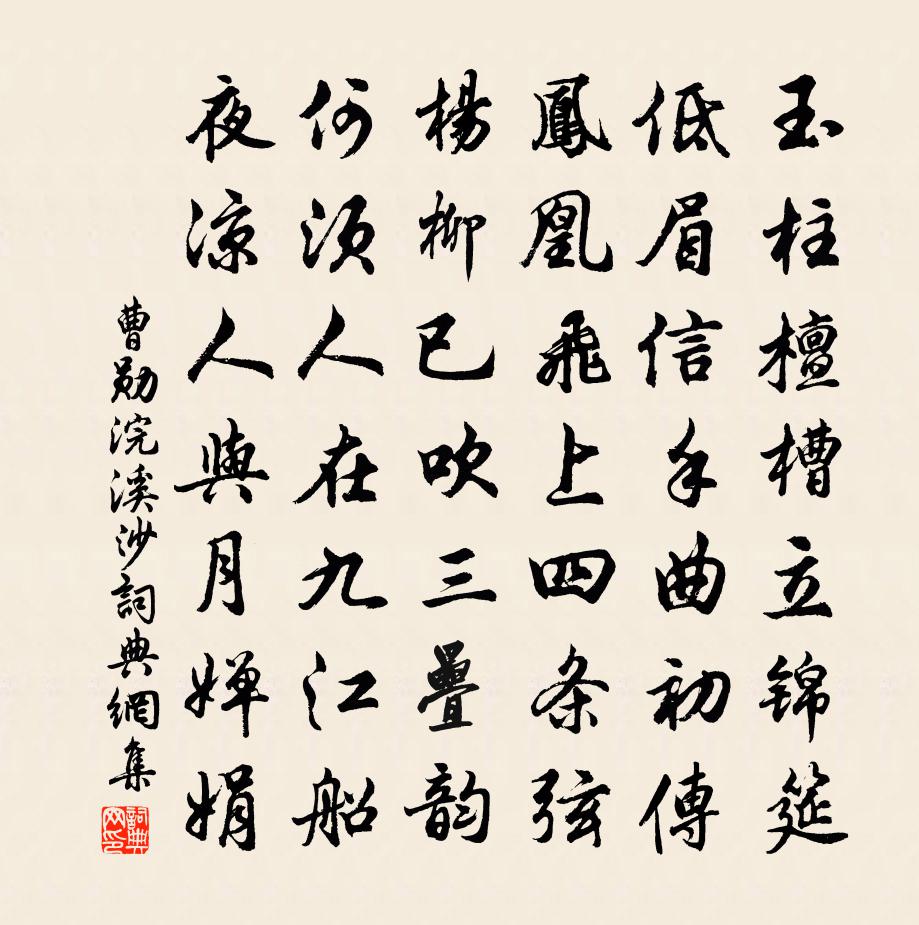 玉柱檀槽立锦筵
低眉信手曲初傳
鳳凰飛上四条弦
楊柳已吹三疊韵
何须人在九江船
夜凉人與月婵娟
曹勛浣溪沙詞典網集
詞典网印